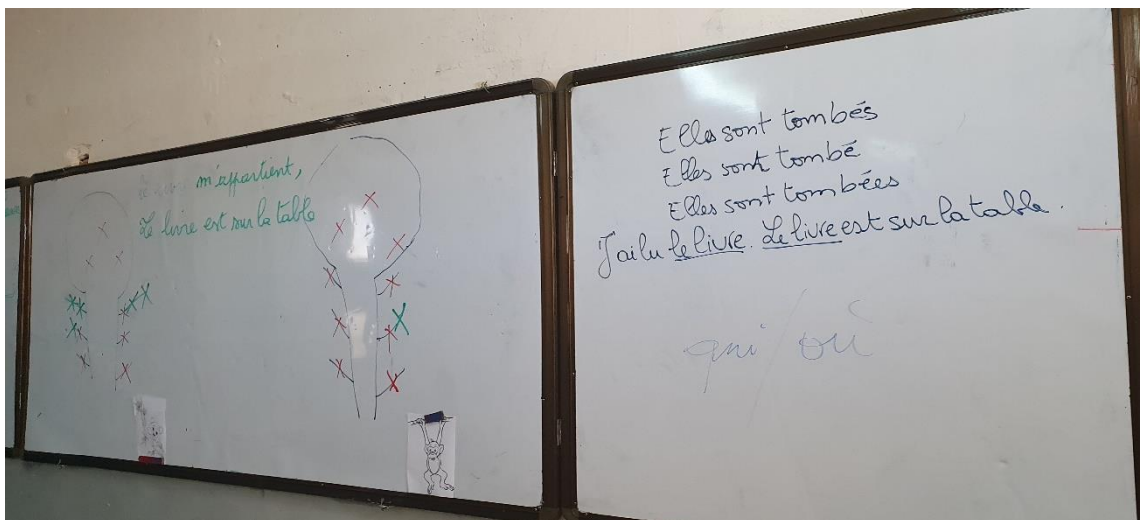 m'appartient,
Le livre est sur la table
Elles sont tombés
Elles sont tombé
Elles sont tombées
J'ai lu le livre. Le livre est sur la table.
qui/où